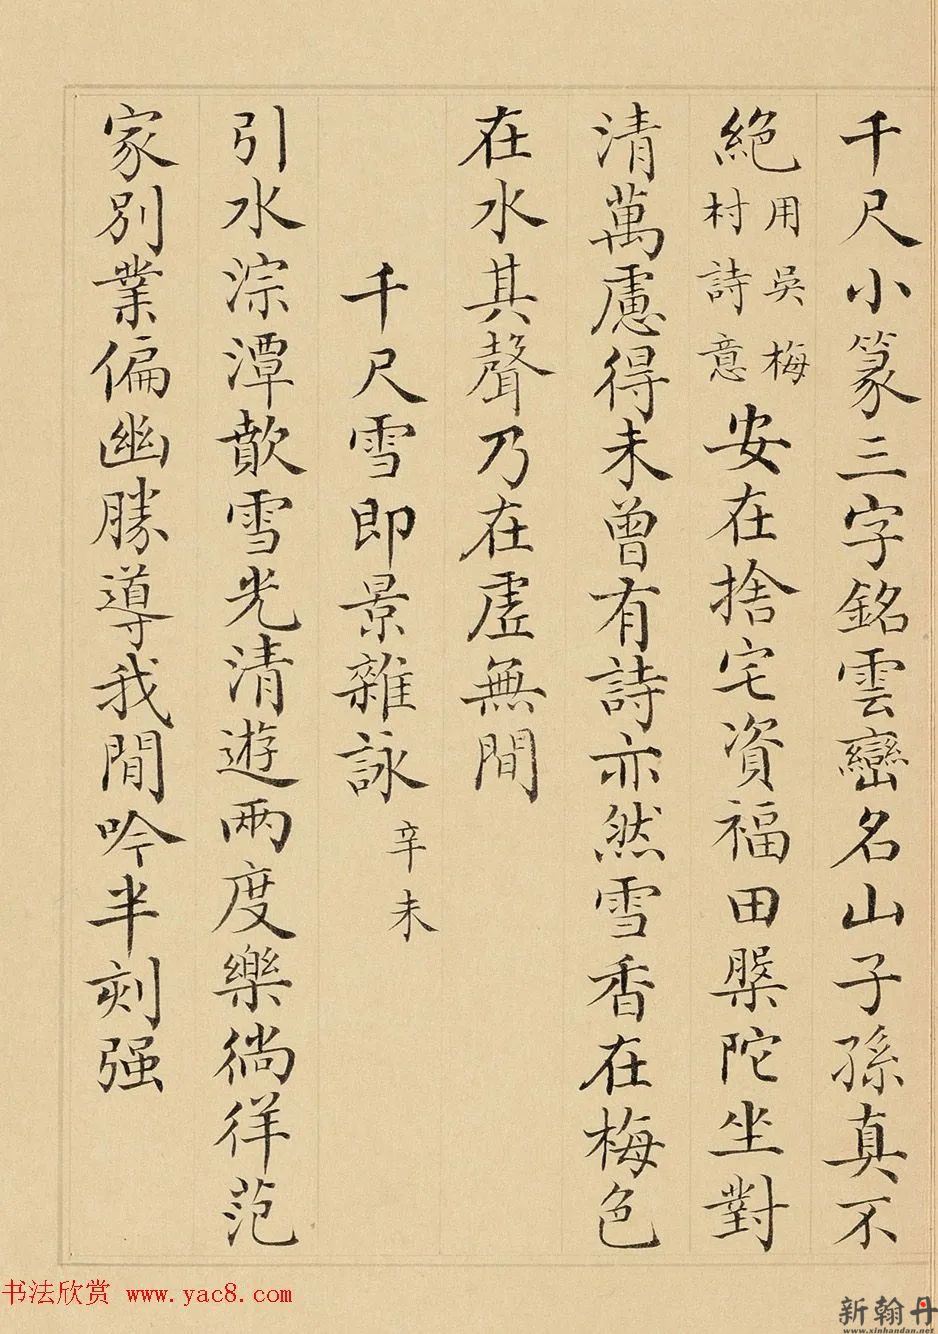 千尺小篆三字銘雲巒名山子孫真不
絕用吳梅村詩意安在捨宅資福田槃陀坐對
清萬慮得未曾有詩亦然雪香在梅色
在水其聲乃在虛無間
千尺雪即景雜詠辛未
引水淙潭歕雪光清遊兩度樂徜徉范
家別業偏幽勝導我閒吟半刻强
书法欣赏 www.yac8.com
新翰丹
www.xinhandan.net